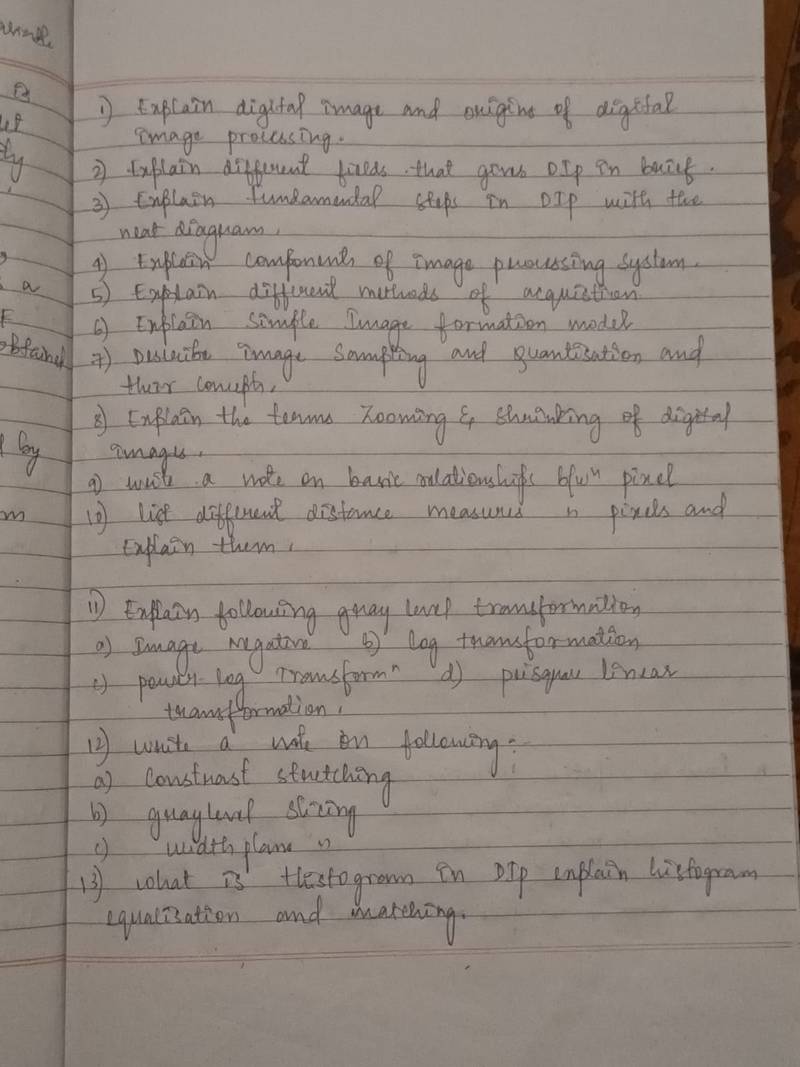 1) Explain digital image and origins of digital
image processing.
2) Explain different fields that gives DIP in brief.
3) Explain fundamental steps in DIP with the
neat diagram.
4) Explain components of image processing system.
5) Explain different methods of acquistion
6) Explain simple Image formation model
7) Describe image Sampling and quantization and
their concepts.
8) Explain the terms Zooming & shrinking of digital
images.
9) write a note on basic relationships b/wn pixel
10) list different distance measures n pixels and
Explain them.
11) Explain following gray level transformation
a) Image negative b) log transformation
c) power-log Transformn d)  linear
transformation.
12) write a note on following:
a) Constrast stretching
b) graylevel slicing
c) width plane "
13) what is Histogram in DIP explain histogram
equalization and matching.
a
obtained
by
m